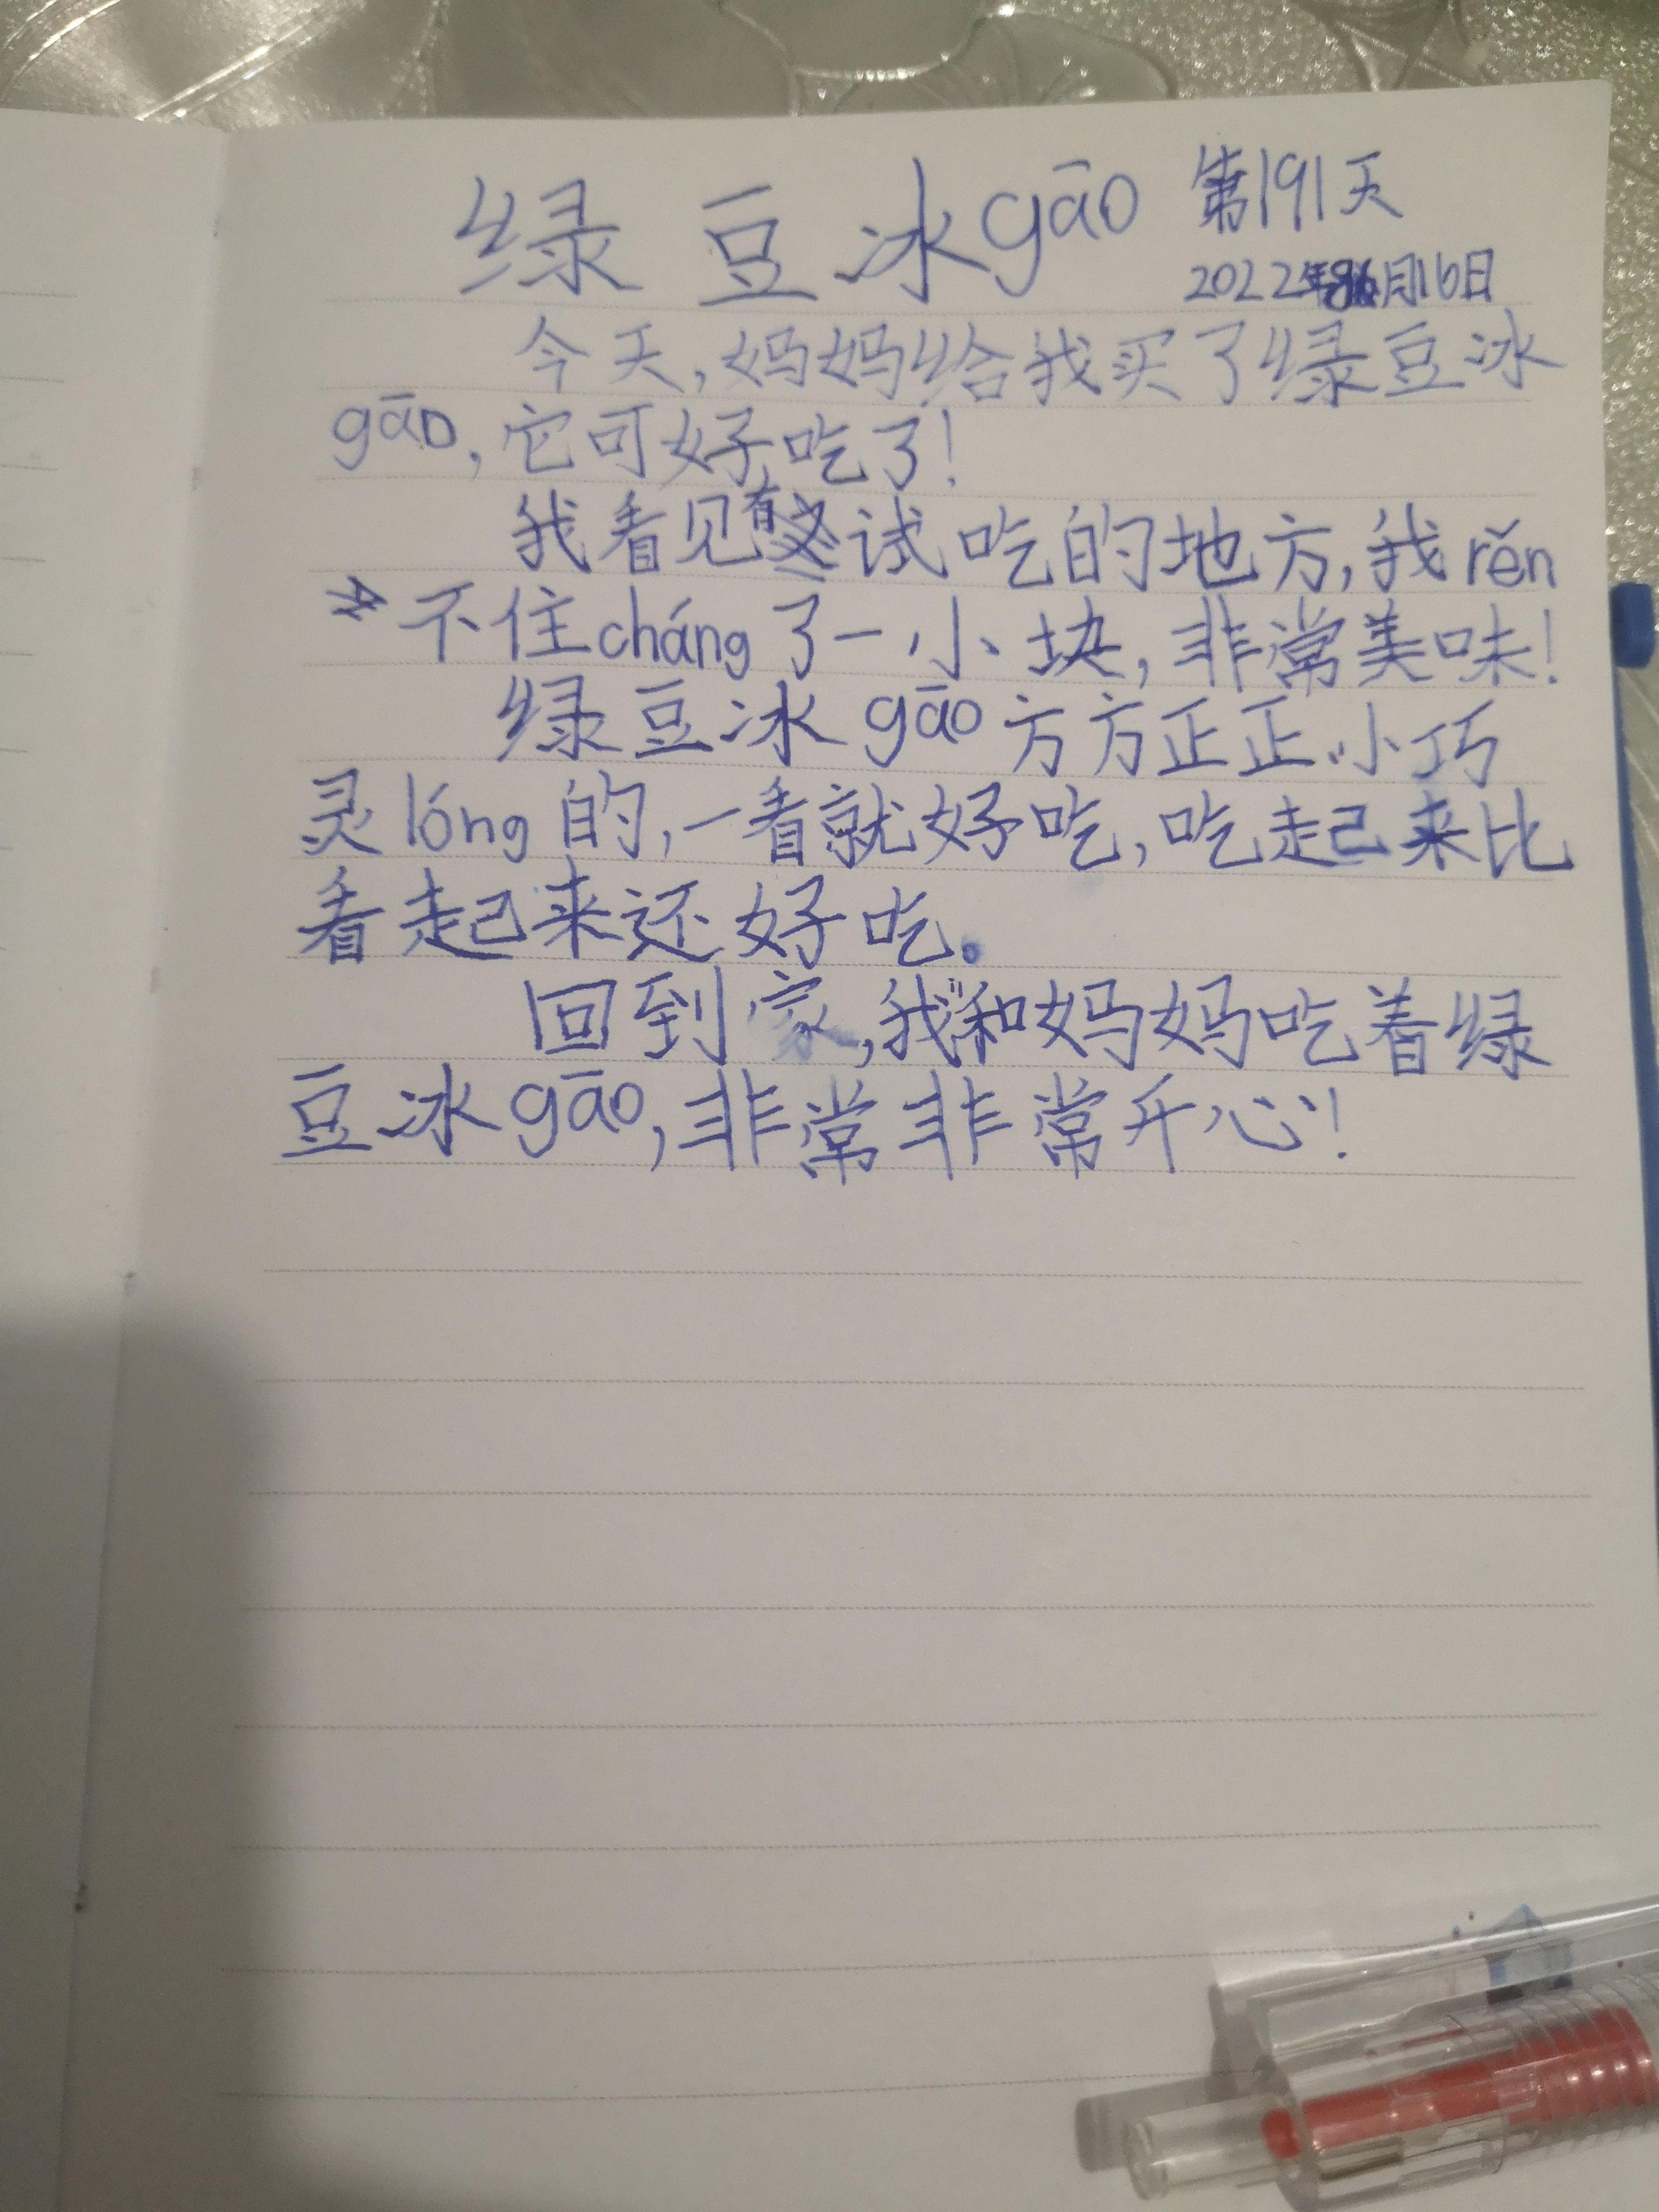 绿豆冰gāo 第191天
2022年6月16日
今天,妈妈给我买了绿豆冰
gāo,它可好吃了!
我看见有试吃的地方,我rěn
不住cháng了一小块,非常美味!
绿豆冰gāo方方正正、小巧
灵lóng的,一看就好吃,吃起来比
看起来还好吃。
回到家,我和妈妈吃着绿
豆冰gāo,非常非常开心!